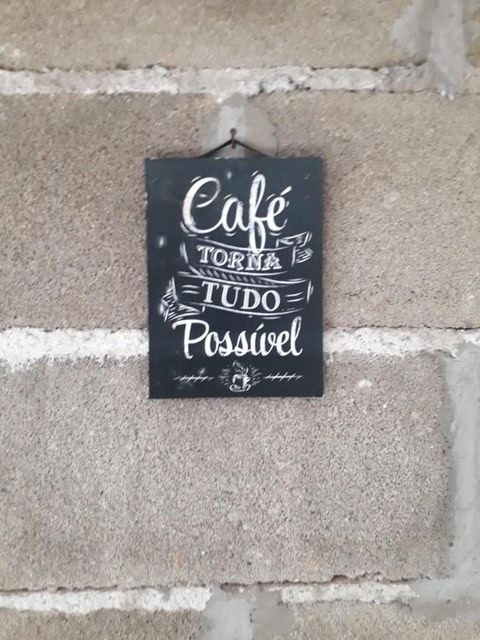 Café
TORNA
TUDO
Possível